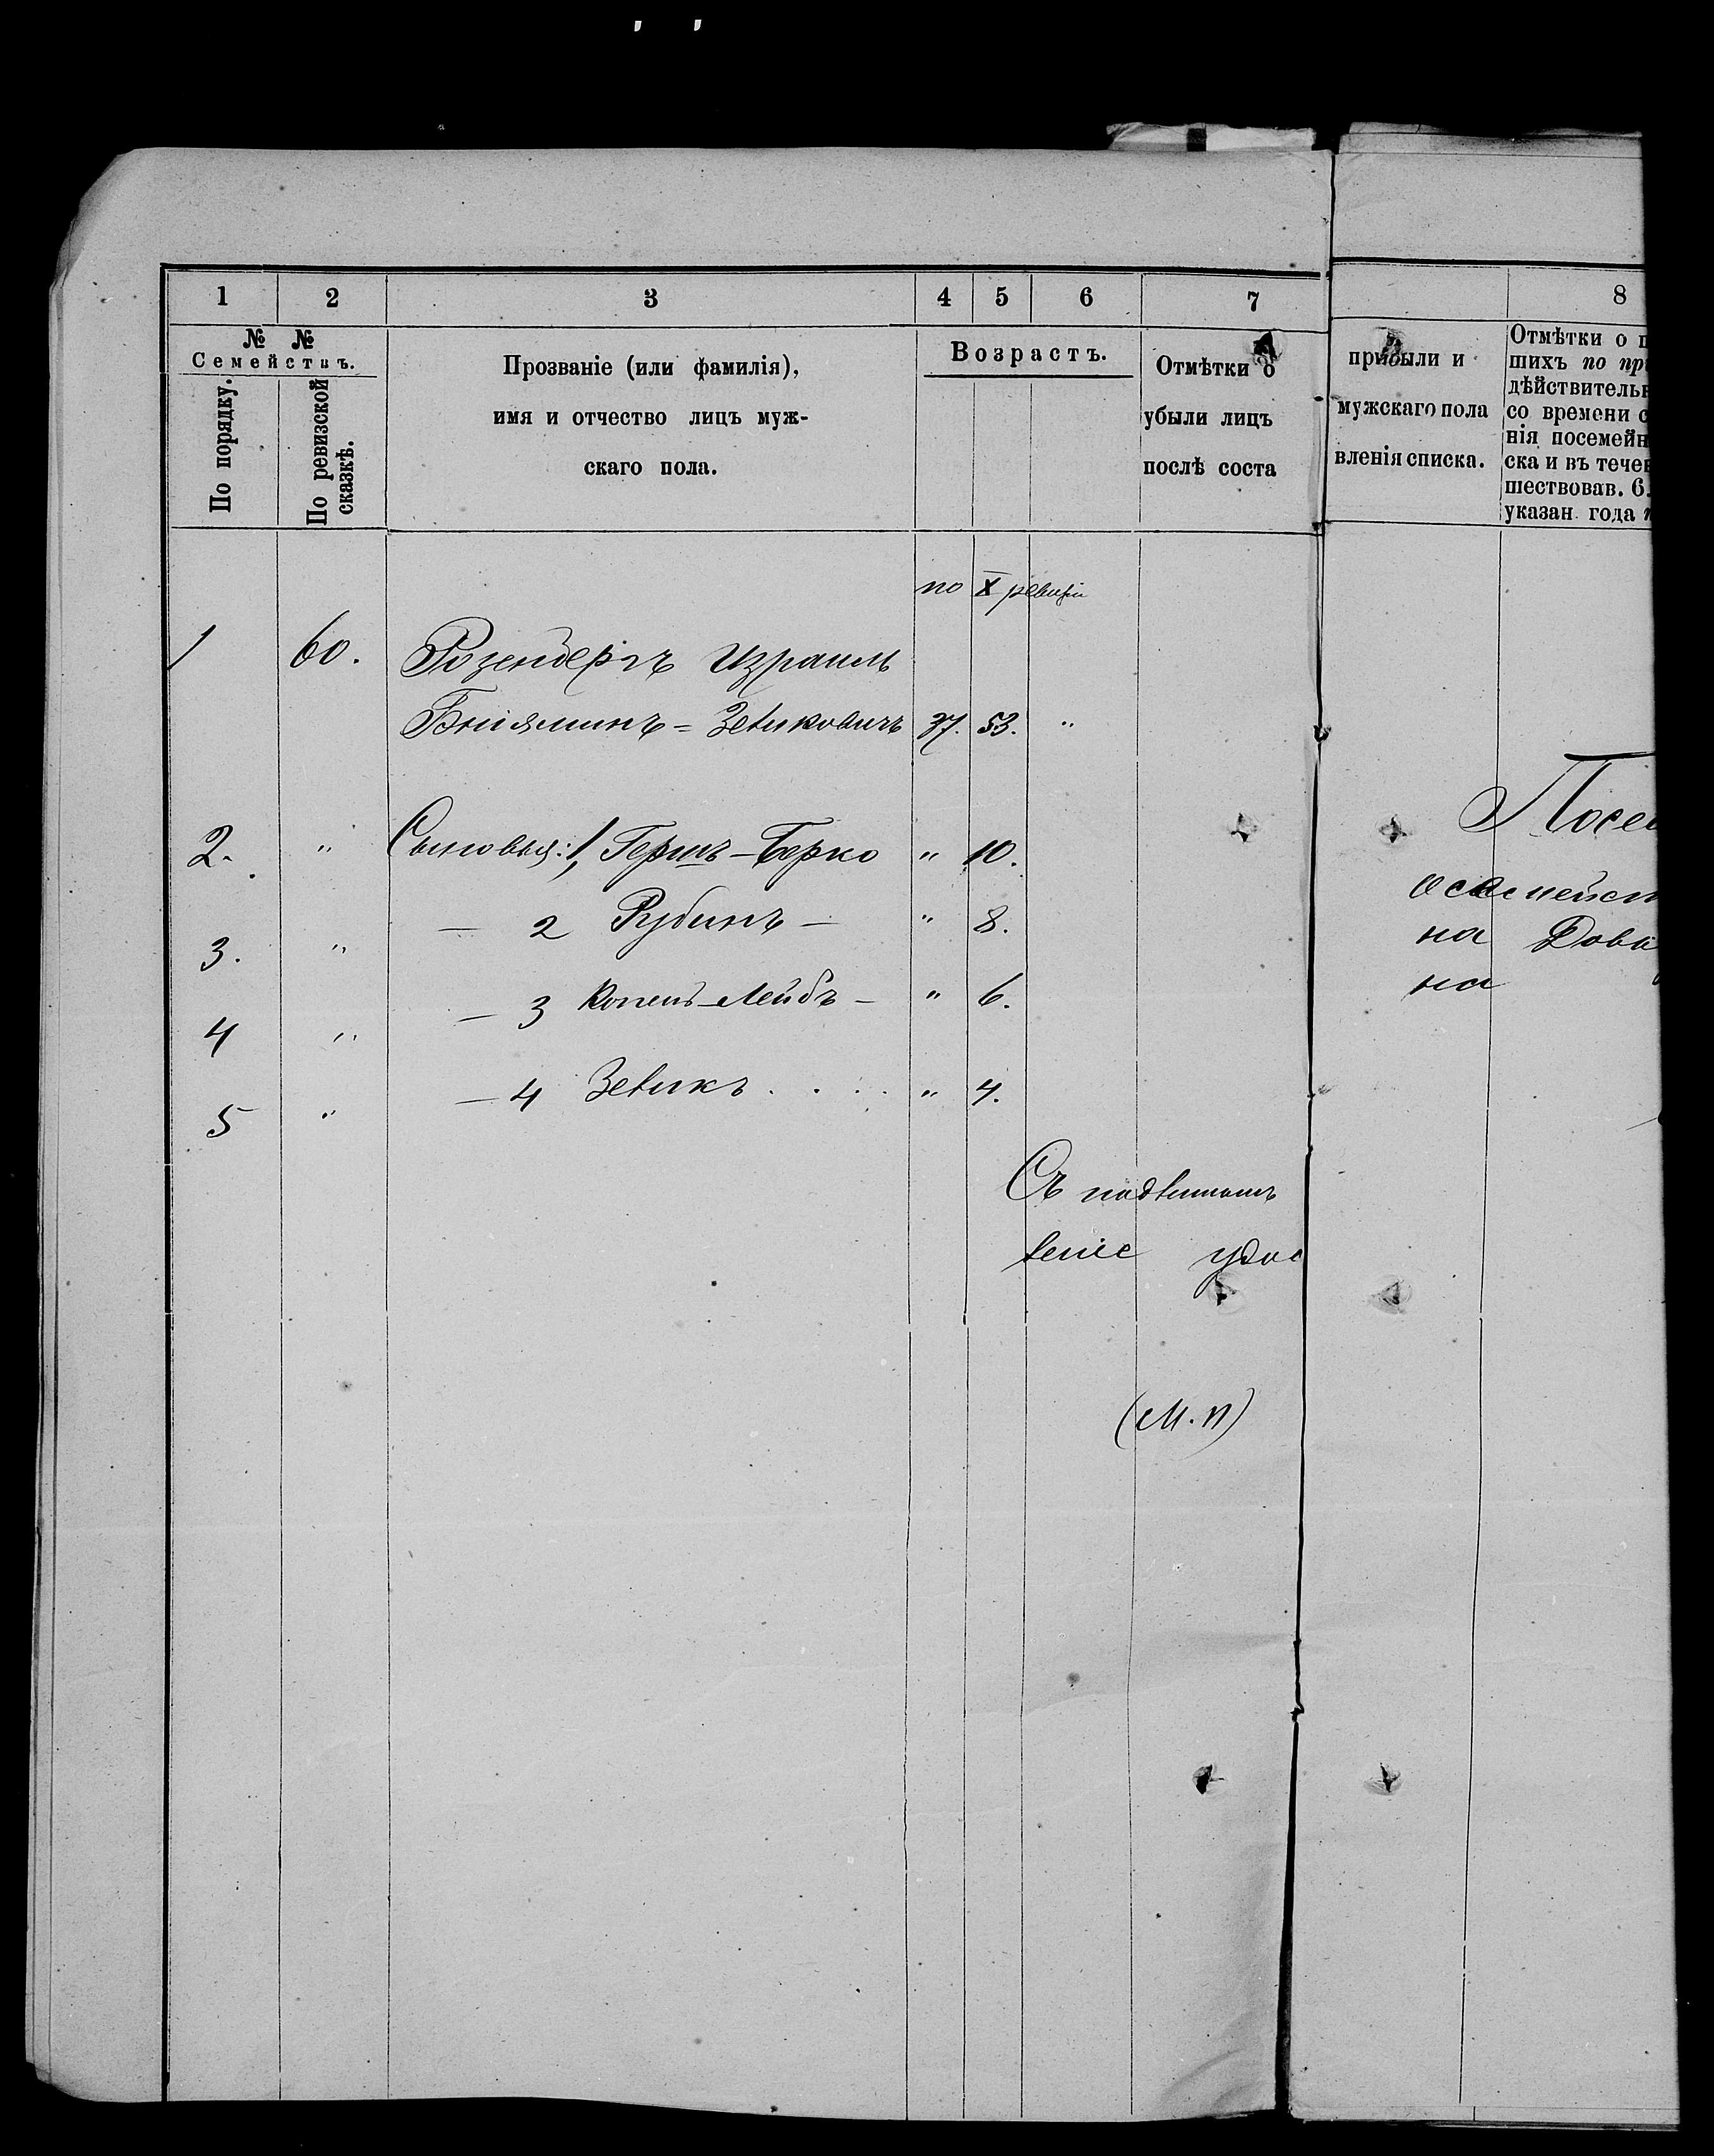 1 2 3 4 5 6 7 8
№ №
Семействъ.
По порядку.
По ревизской сказкѣ.
Прозваніе (или фамилія),
имя и отчество лицъ муж-
скаго пола.
Возрастъ.
Отмѣтки о
убыли лицъ
послѣ соста
прибыли и
мужскаго пола
вленія списка.
Отмѣтки о п
шихъ по пр
дѣйствительн
со времени с
нія посемейн
ска и въ тече
шествовав. 6.
указан. года
по X ревизіи
1 60. Розенбергъ Израиль
Бніяминъ = Зевиковичъ 37. 53. "
2. " Сыновья: 1, Гершъ-Берко " 10.
3. " — 2 Рубинъ — " 8.
4 " — 3 Копель-Лейбъ — " 6.
5 " — 4 Зевикъ . . . . " 4.
Съ подлиннымъ
веніе удос
(М.П)
Посе
о семейст
на Дови
на